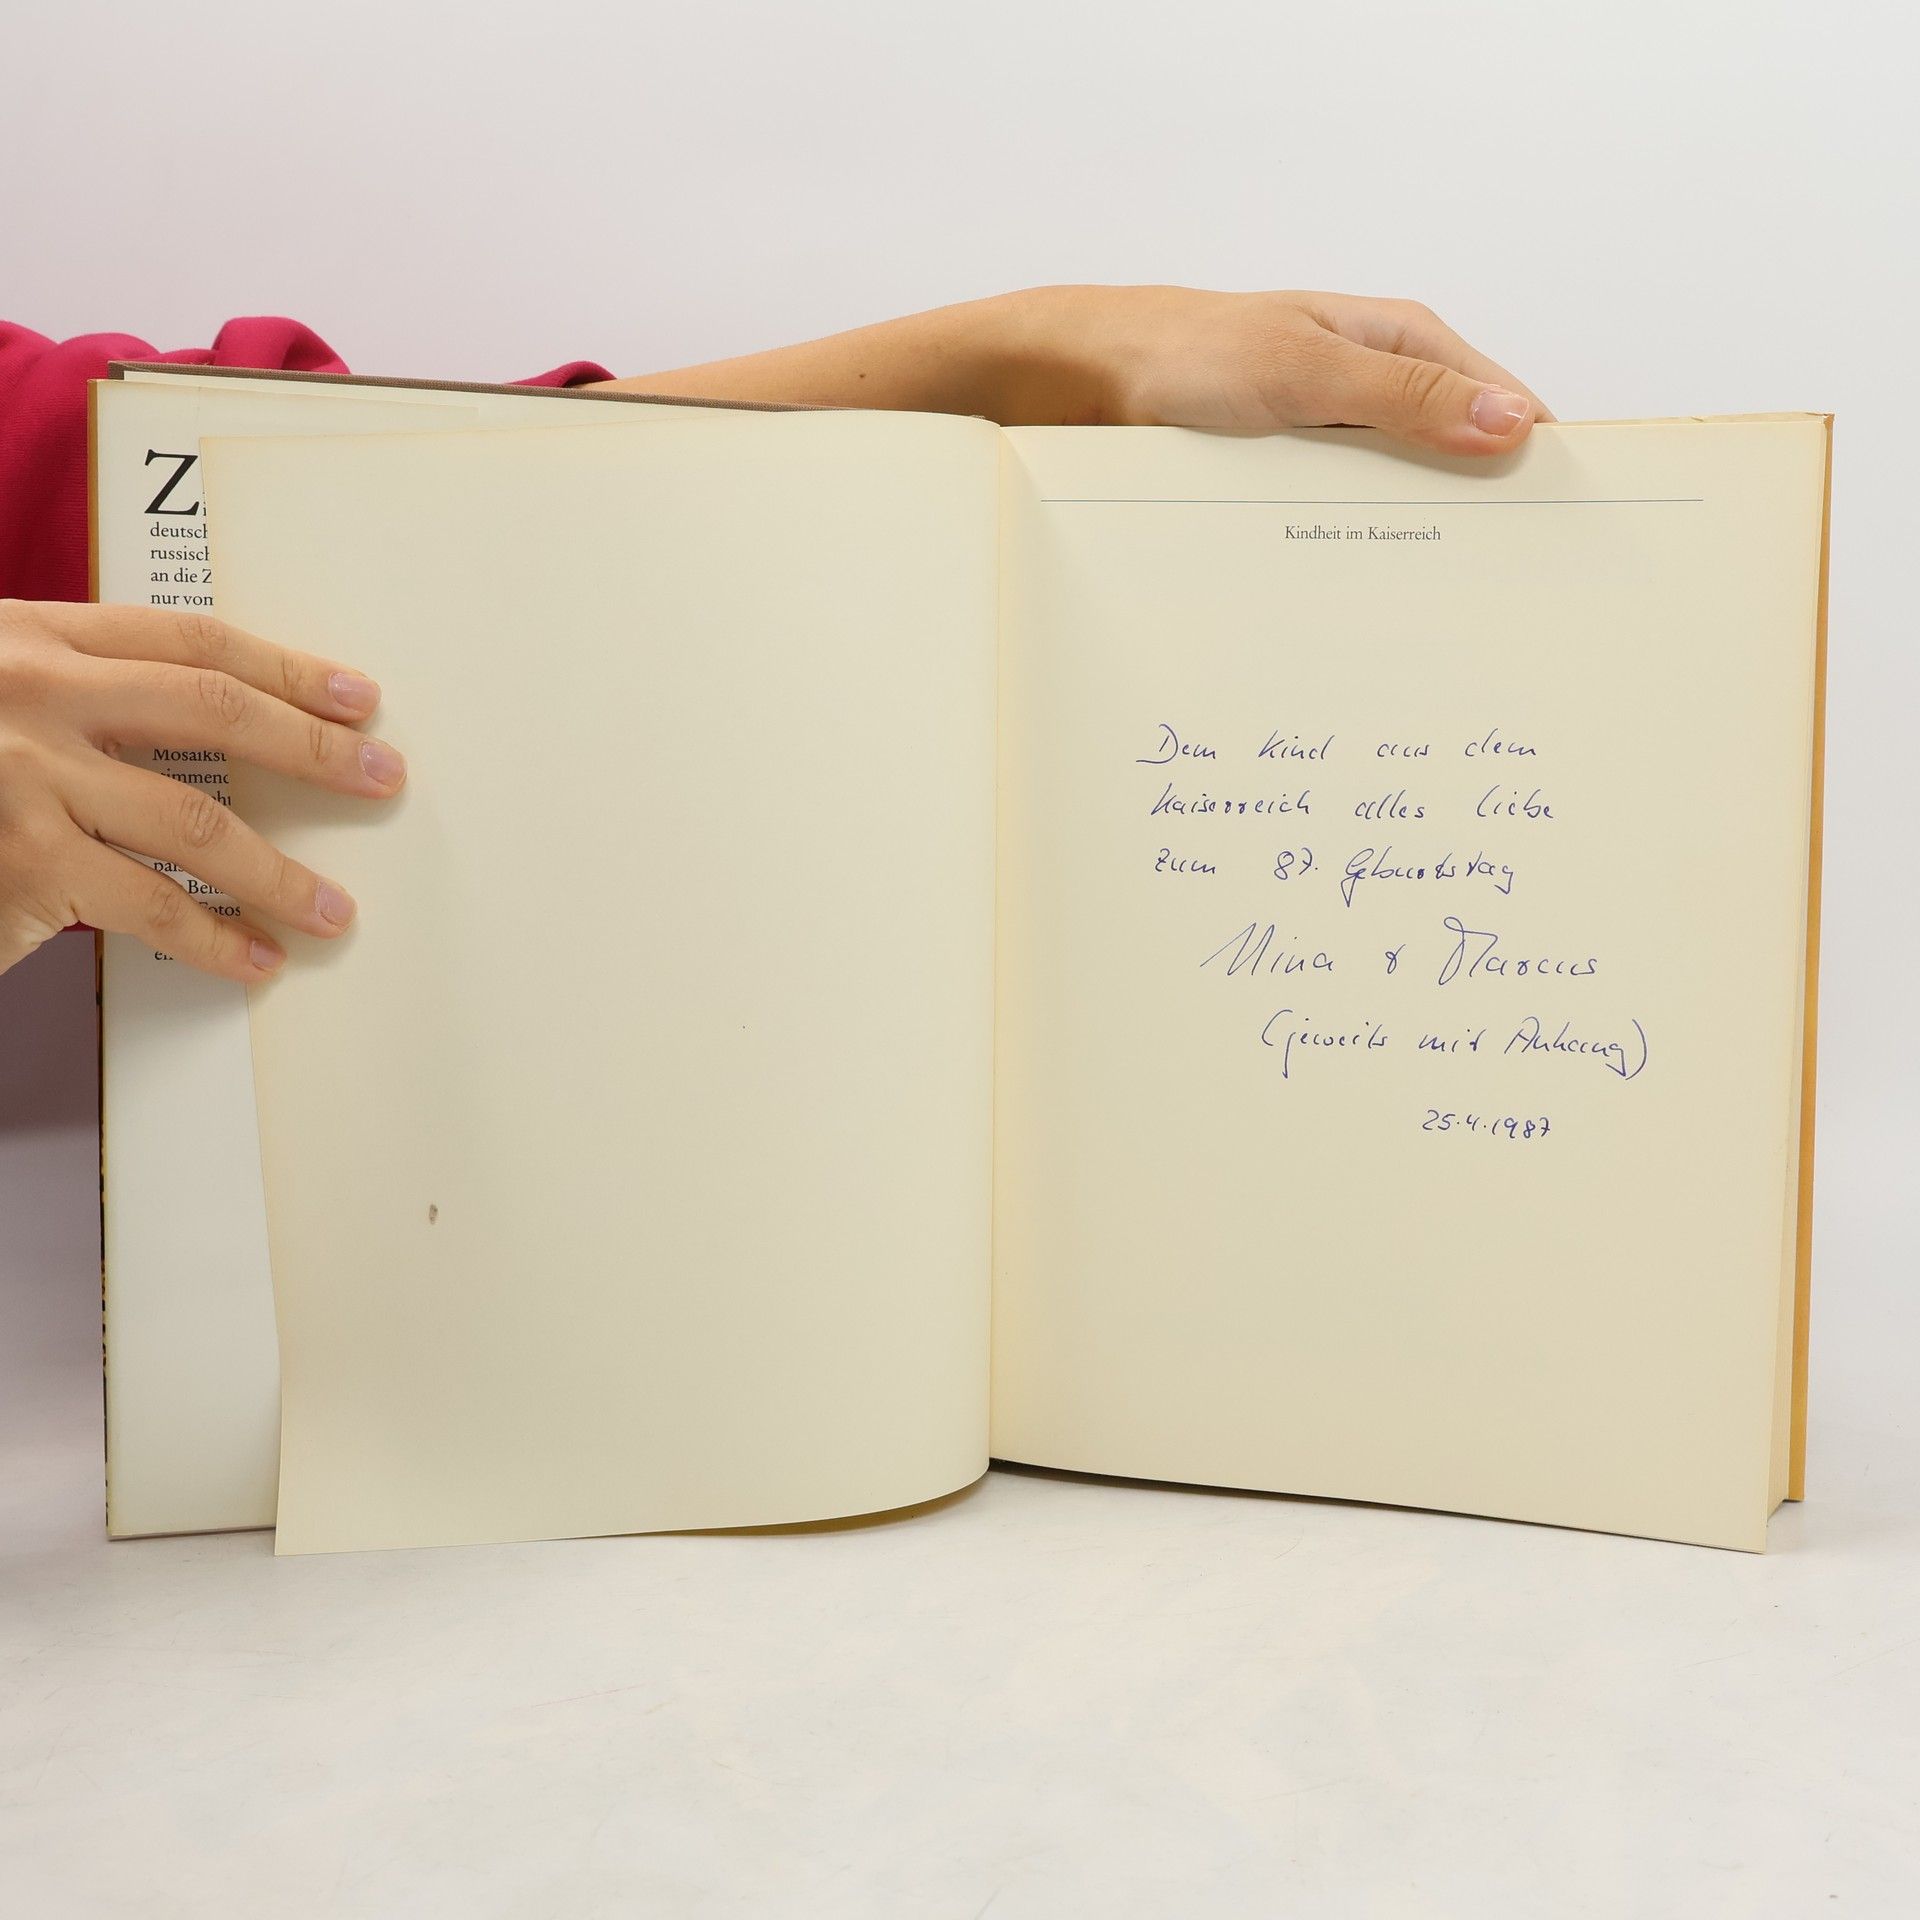 Z
deutsch
russisch
an die Z
nur vom
Mosaikst
Fotos
Kindheit im Kaiserreich
Dem Kind aus dem
Kaiserreich alles Liebe
zum 87. Geburtstag
Nina & Marcus
(jeweils mit Anhang)
25.4.1987